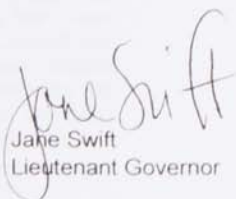 Jane Swift
Jane Swift
Lieutenant Governor